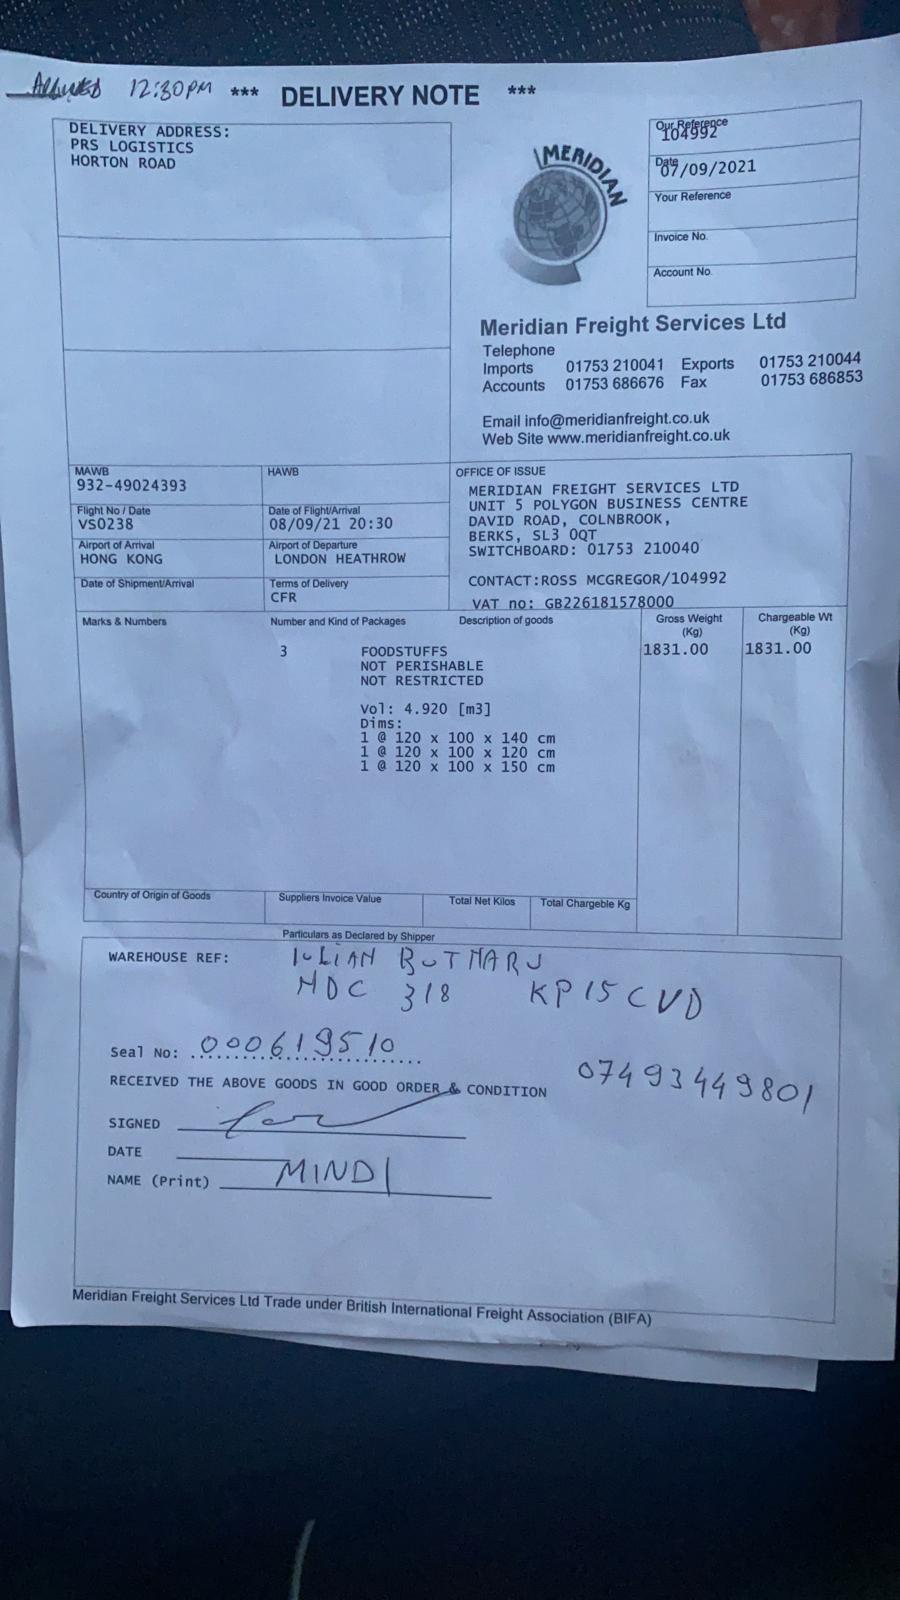 ARRIVED 12:30PM *** DELIVERY NOTE ***
DELIVERY ADDRESS:
PRS LOGISTICS
HORTON ROAD
MERIDIAN
Our Reference
104992
Date
07/09/2021
Your Reference
Invoice No.
Account No.
Meridian Freight Services Ltd
Telephone
Imports 01753 210041 Exports 01753 210044
Accounts 01753 686676 Fax 01753 686853
Email info@meridianfreight.co.uk
Web Site www.meridianfreight.co.uk
MAWB
932-49024393
HAWB
Flight No / Date
VS0238
Date of Flight/Arrival
08/09/21 20:30
Airport of Arrival
HONG KONG
Airport of Departure
LONDON HEATHROW
Date of Shipment/Arrival
Terms of Delivery
CFR
OFFICE OF ISSUE
MERIDIAN FREIGHT SERVICES LTD
UNIT 5 POLYGON BUSINESS CENTRE
DAVID ROAD, COLNBROOK,
BERKS, SL3 0QT
SWITCHBOARD: 01753 210040
CONTACT:ROSS MCGREGOR/104992
VAT no: GB226181578000
Marks & Numbers Number and Kind of Packages Description of goods Gross Weight (Kg) Chargeable Wt (Kg)
3 FOODSTUFFS 1831.00 1831.00
NOT PERISHABLE
NOT RESTRICTED
Vol: 4.920 [m3]
Dims:
1 @ 120 x 100 x 140 cm
1 @ 120 x 100 x 120 cm
1 @ 120 x 100 x 150 cm
Country of Origin of Goods Suppliers Invoice Value Total Net Kilos Total Chargeble Kg
Particulars as Declared by Shipper
WAREHOUSE REF: IULIAN BUTNARU
NDC 318 KP15CVD
Seal No: 000619510
07493449801
RECEIVED THE ABOVE GOODS IN GOOD ORDER & CONDITION
SIGNED
DATE
NAME (Print) MINDI
Meridian Freight Services Ltd Trade under British International Freight Association (BIFA)